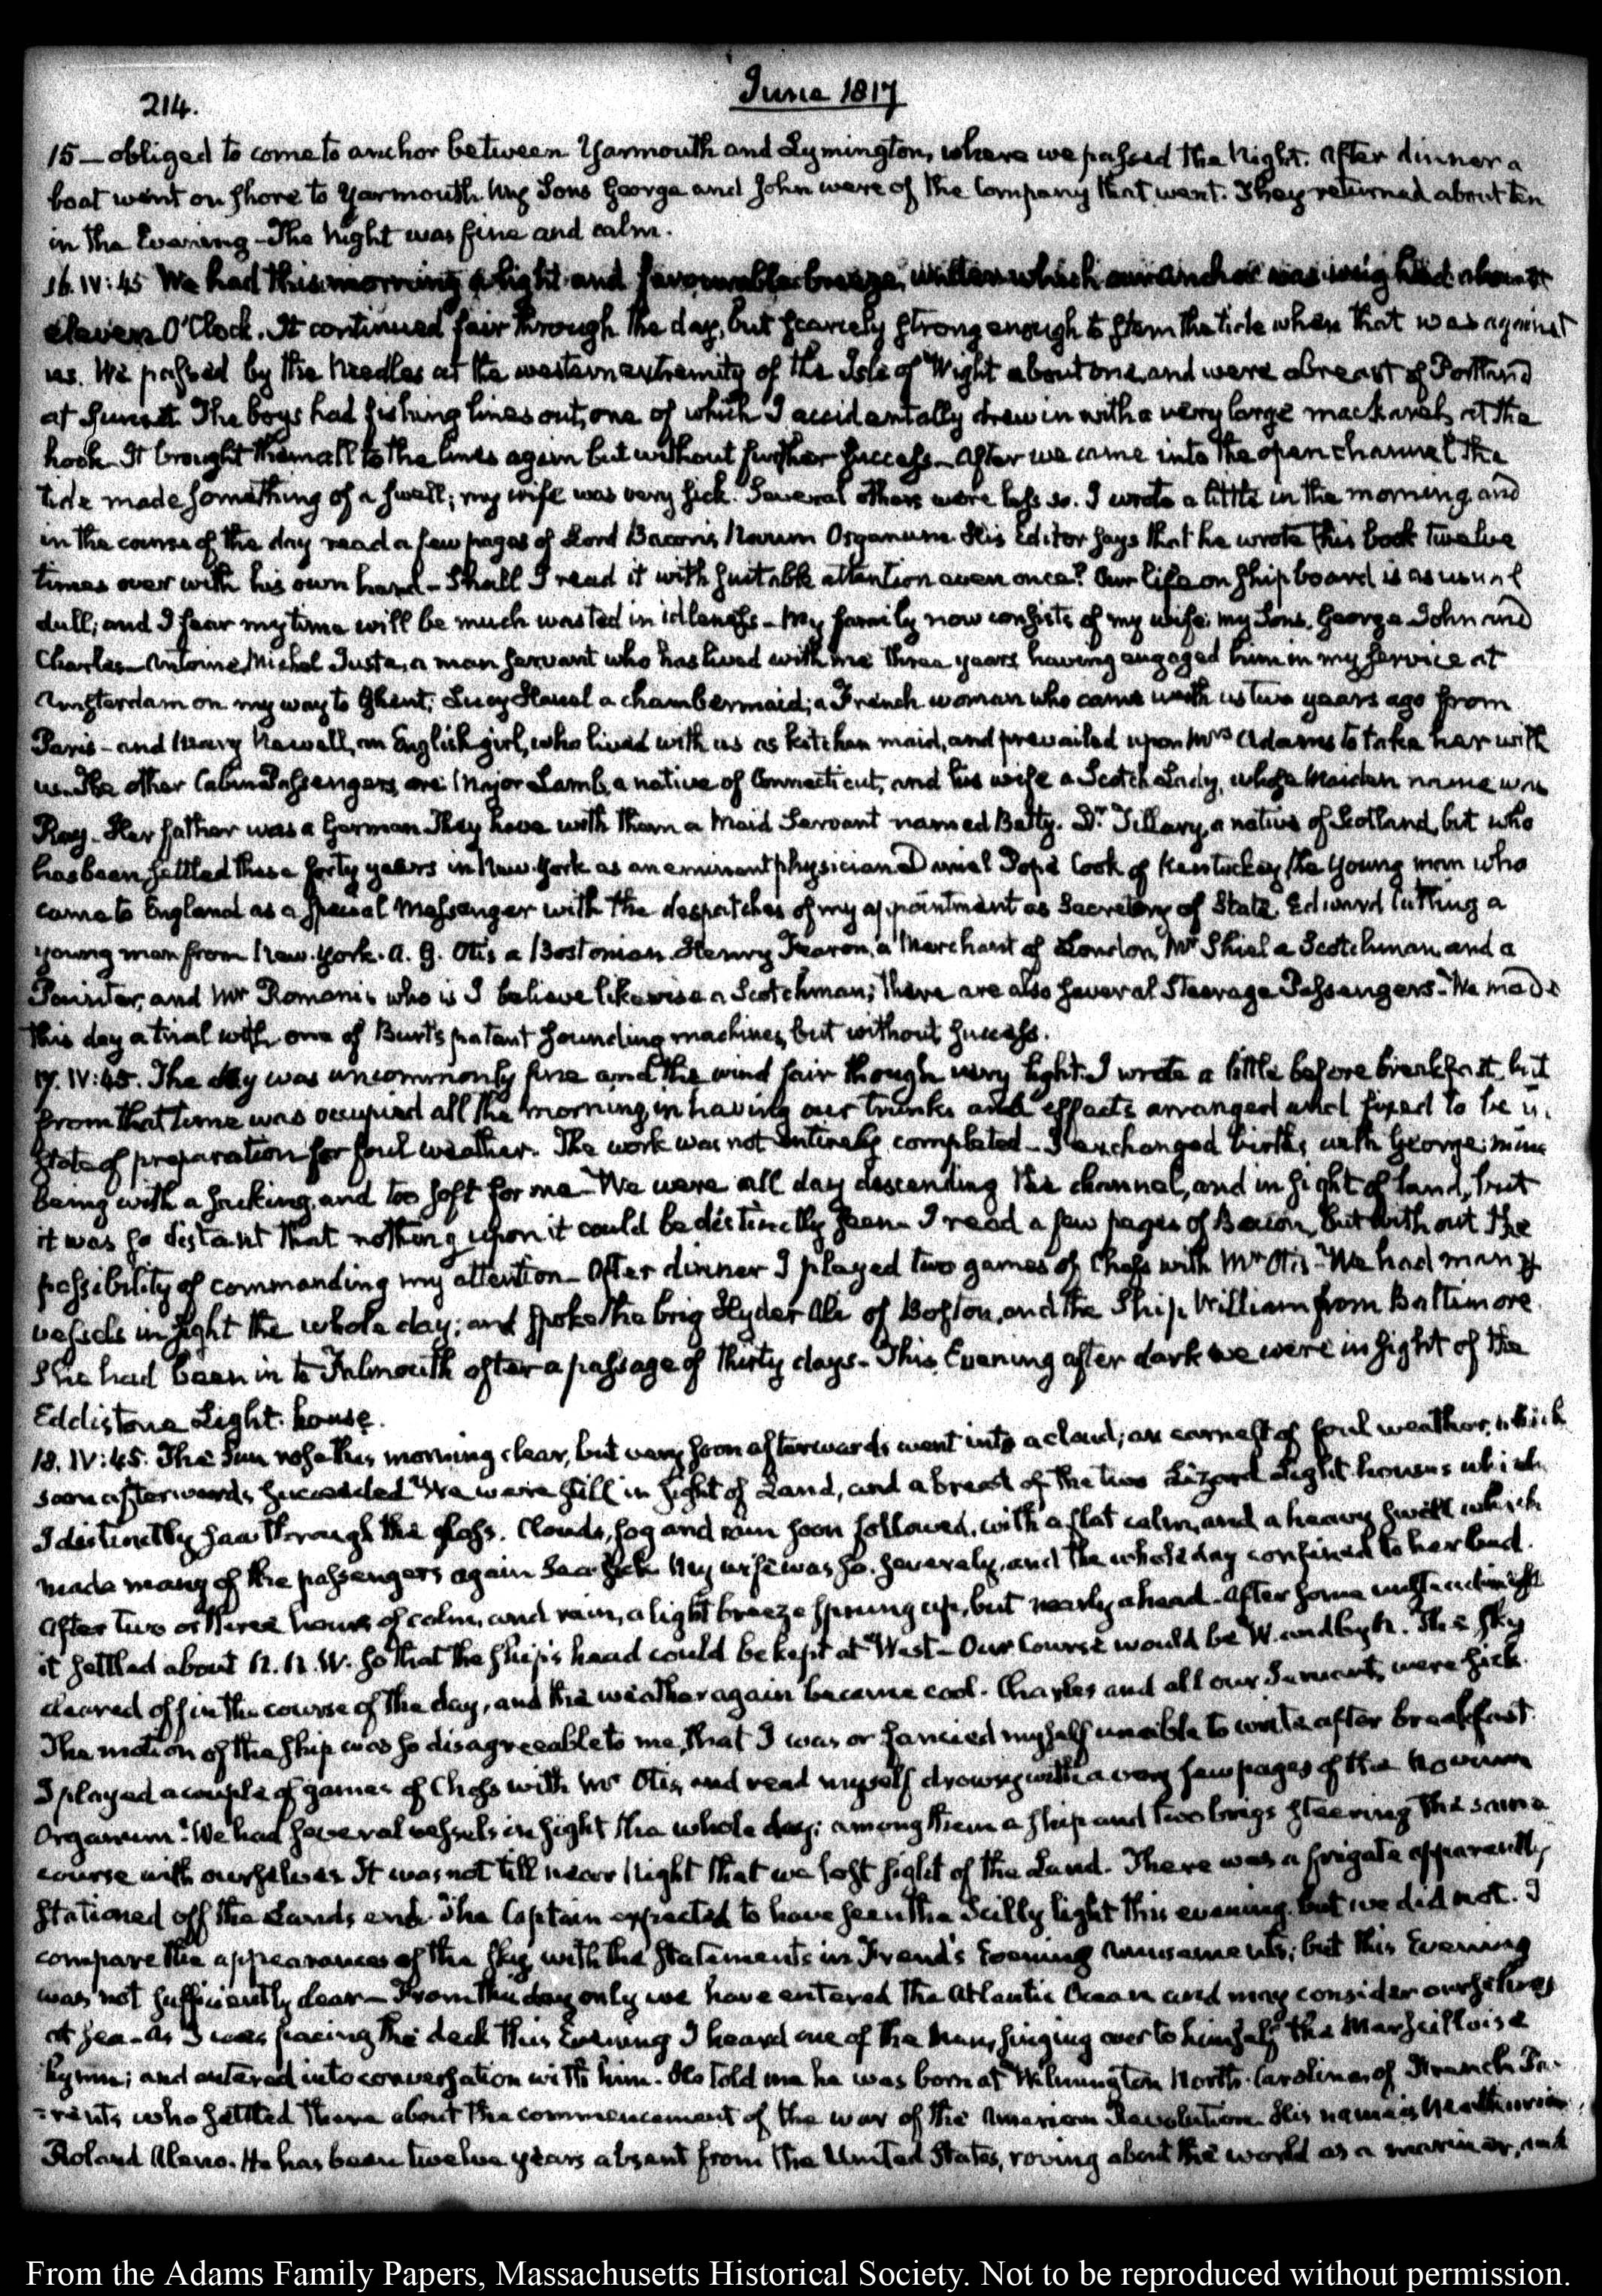 214.
June 1817
15 — obliged to come to anchor between Yarmouth and Lymington, where we passed the Night. After dinner a
boat went on shore to Yarmouth. My Sons George and John were of the Company that went. They returned about ten
in the Evening — The Night was fine and calm.
16. IV:45 We had this morning a light and favourable breeze, under which our anchor was weighed about
eleven O'Clock. It continued fair through the day, but scarcely strong enough to stem the tide when that was against
us. We passed by the Needles at the western extremity of the Isle of Wight about one, and were abreast of Portland
at Sunset. The boys had fishing lines out, one of which I accidentally drew in with a very large mackarel, at the
hook. It brought them all to the lines again but without further success — After we came into the open channel the
tide made something of a swell; my wife was very sick. Several others were less so. I wrote a little in the morning and
in the course of the day read a few pages of Lord Bacon's Novum Organum. His Editor says that he wrote this book twelve
times over with his own hand — Shall I read it with suitable attention even once? Our life on ship board is as usual
dull; and I fear my time will be much wasted in idleness — My family now consists of my wife, my Sons, George John and
Charles — Antoine Michel Juste, a man servant who has lived with me three years having engaged him in my service at
Amsterdam on my way to Ghent; Lucy a chambermaid; a French woman who came with us two years ago from
Paris — and Mary Newell, an English girl, who lived with us as kitchen maid, and prevailed upon Mrs Adams to take her with
us. The other Cabin Passengers are Major Lamb, a native of Connecticut, and his wife a Scotch Lady, whose Maiden name was
Ray — Her father was a German They have with them a Maid Servant named Betty. Dr. Tillary, a native of Scotland, but who
has been settled these forty years in New York as an eminent physician Daniel Pope Cook of Kentuckey, the young man who
came to England as a special Messenger with the despatches of my appointment as Secretary of State. Edward Cutting a
young man from New York. A. G. Otis a Bostonian. Henry Fearon, a Merchant of London, Mr Shiel a Scotchman, and a
Painter, and Mr Romanis who is I believe likewise a Scotchman; there are also several Steerage Passengers. We made
this day a trial with one of Burt's patent sounding machines, but without success.
17. IV:45. The day was uncommonly fine and the wind fair though very light. I wrote a little before breakfast, but
from that time was occupied all the morning, in having our trunks and effects arranged and fixed to be in
state of preparation for foul weather. The work was not entirely completed — I exchanged births with George: mine
being with a sacking, and too soft for me — We were all day descending the channel, and in sight of land, but
it was so distant that nothing upon it could be distinctly seen. I read a few pages of Bacon, but without the
possibility of commanding my attention — After dinner I played two games of Chess with Mr Otis — We had many
vessels in sight the whole day; and spoke the brig Hyder Ali of Boston, and the Ship William from Baltimore.
She had been in to Falmouth after a passage of thirty days — This Evening after dark we were in sight of the
Eddistone Light-house.
18. IV:45. The Sun rose this morning clear, but very soon afterwards went into a cloud; an earnest of foul weather, which
soon afterwards succeeded We were still in sight of Land, and abreast of the two Lizard Light-houses which
I distinctly saw through the glass. Clouds, fog and rain soon followed, with a flat calm, and a heavy swell which
made many of the passengers again Sea-sick My wife was so, severely, and the whole day confined to her bed.
After two or three hours of calm, and rain, a light breeze sprung up, but nearly ahead. After some
it settled about N. N. W. so that the ship's head could be kept at West — Our Course would be W. and by N. The Sky
cleared off in the course of the day, and the weather again became cool. Charles and all our Servants were sick.
The motion of the Ship was so disagreeable to me, that I was or fancied myself unable to write after breakfast.
I played a couple of games of Chess with Mr Otis, and read myself drowsy with a very few pages of the Novum
Organum. We had several vessels in sight the whole day; among them a ship and two brigs steering the same
course with ourselves. It was not till near Night that we lost sight of the Land. There was a frigate apparently
stationed off the Lands end. The Captain expected to have seen the Scilly light this evening, but we did not. I
compare the appearances of the Sky with the statements in Frend's Evening Amusements; but this Evening
was not sufficiently clear — From this day only we have entered the Atlantic Ocean and may consider ourselves
at sea. As I was pacing the deck this Evening I heard one of the Men, singing over to himself the Marseilloise
hymn; and entered into conversation with him. He told me he was born at Wilmington North-Carolina, of French Pa-
=rents, who settled there about the commencement of the war of the American Revolution. His name is
Roland He has been twelve years absent from the United States, roving about the world as a mariner, and
From the Adams Family Papers, Massachusetts Historical Society. Not to be reproduced without permission.